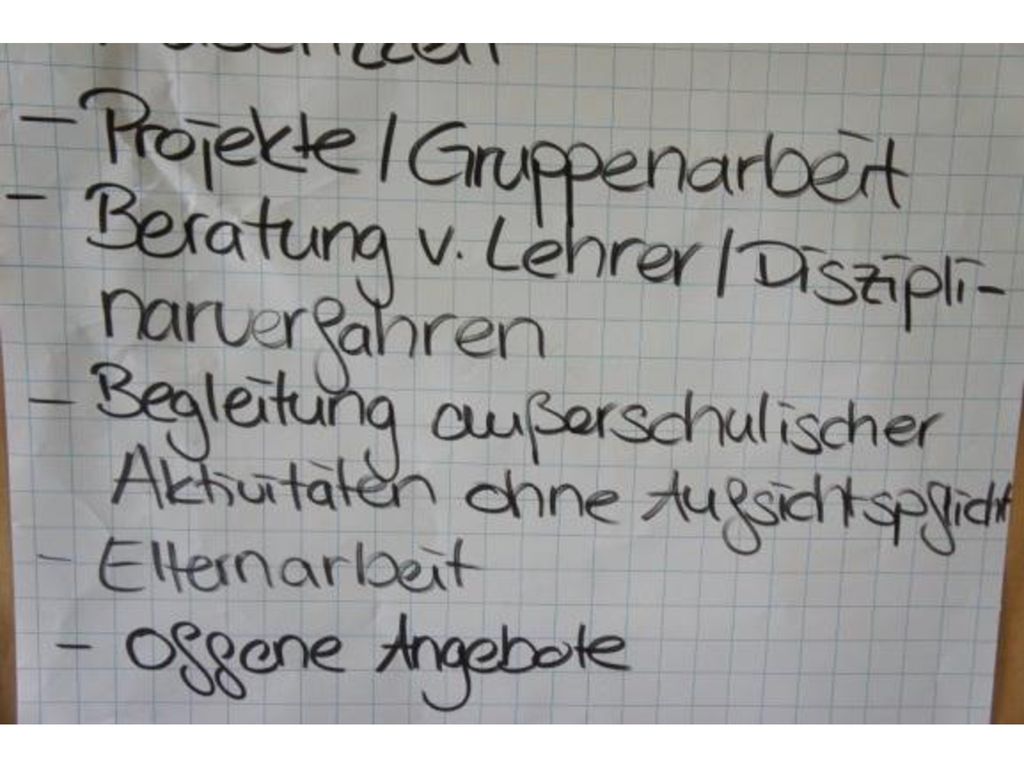 - Projekte / Gruppenarbeit
- Beratung v. Lehrer / Diszipli-
narverfahren
- Begleitung außerschulischer
Aktivitäten ohne Aufsichtspflicht
- Elternarbeit
- Offene Angebote